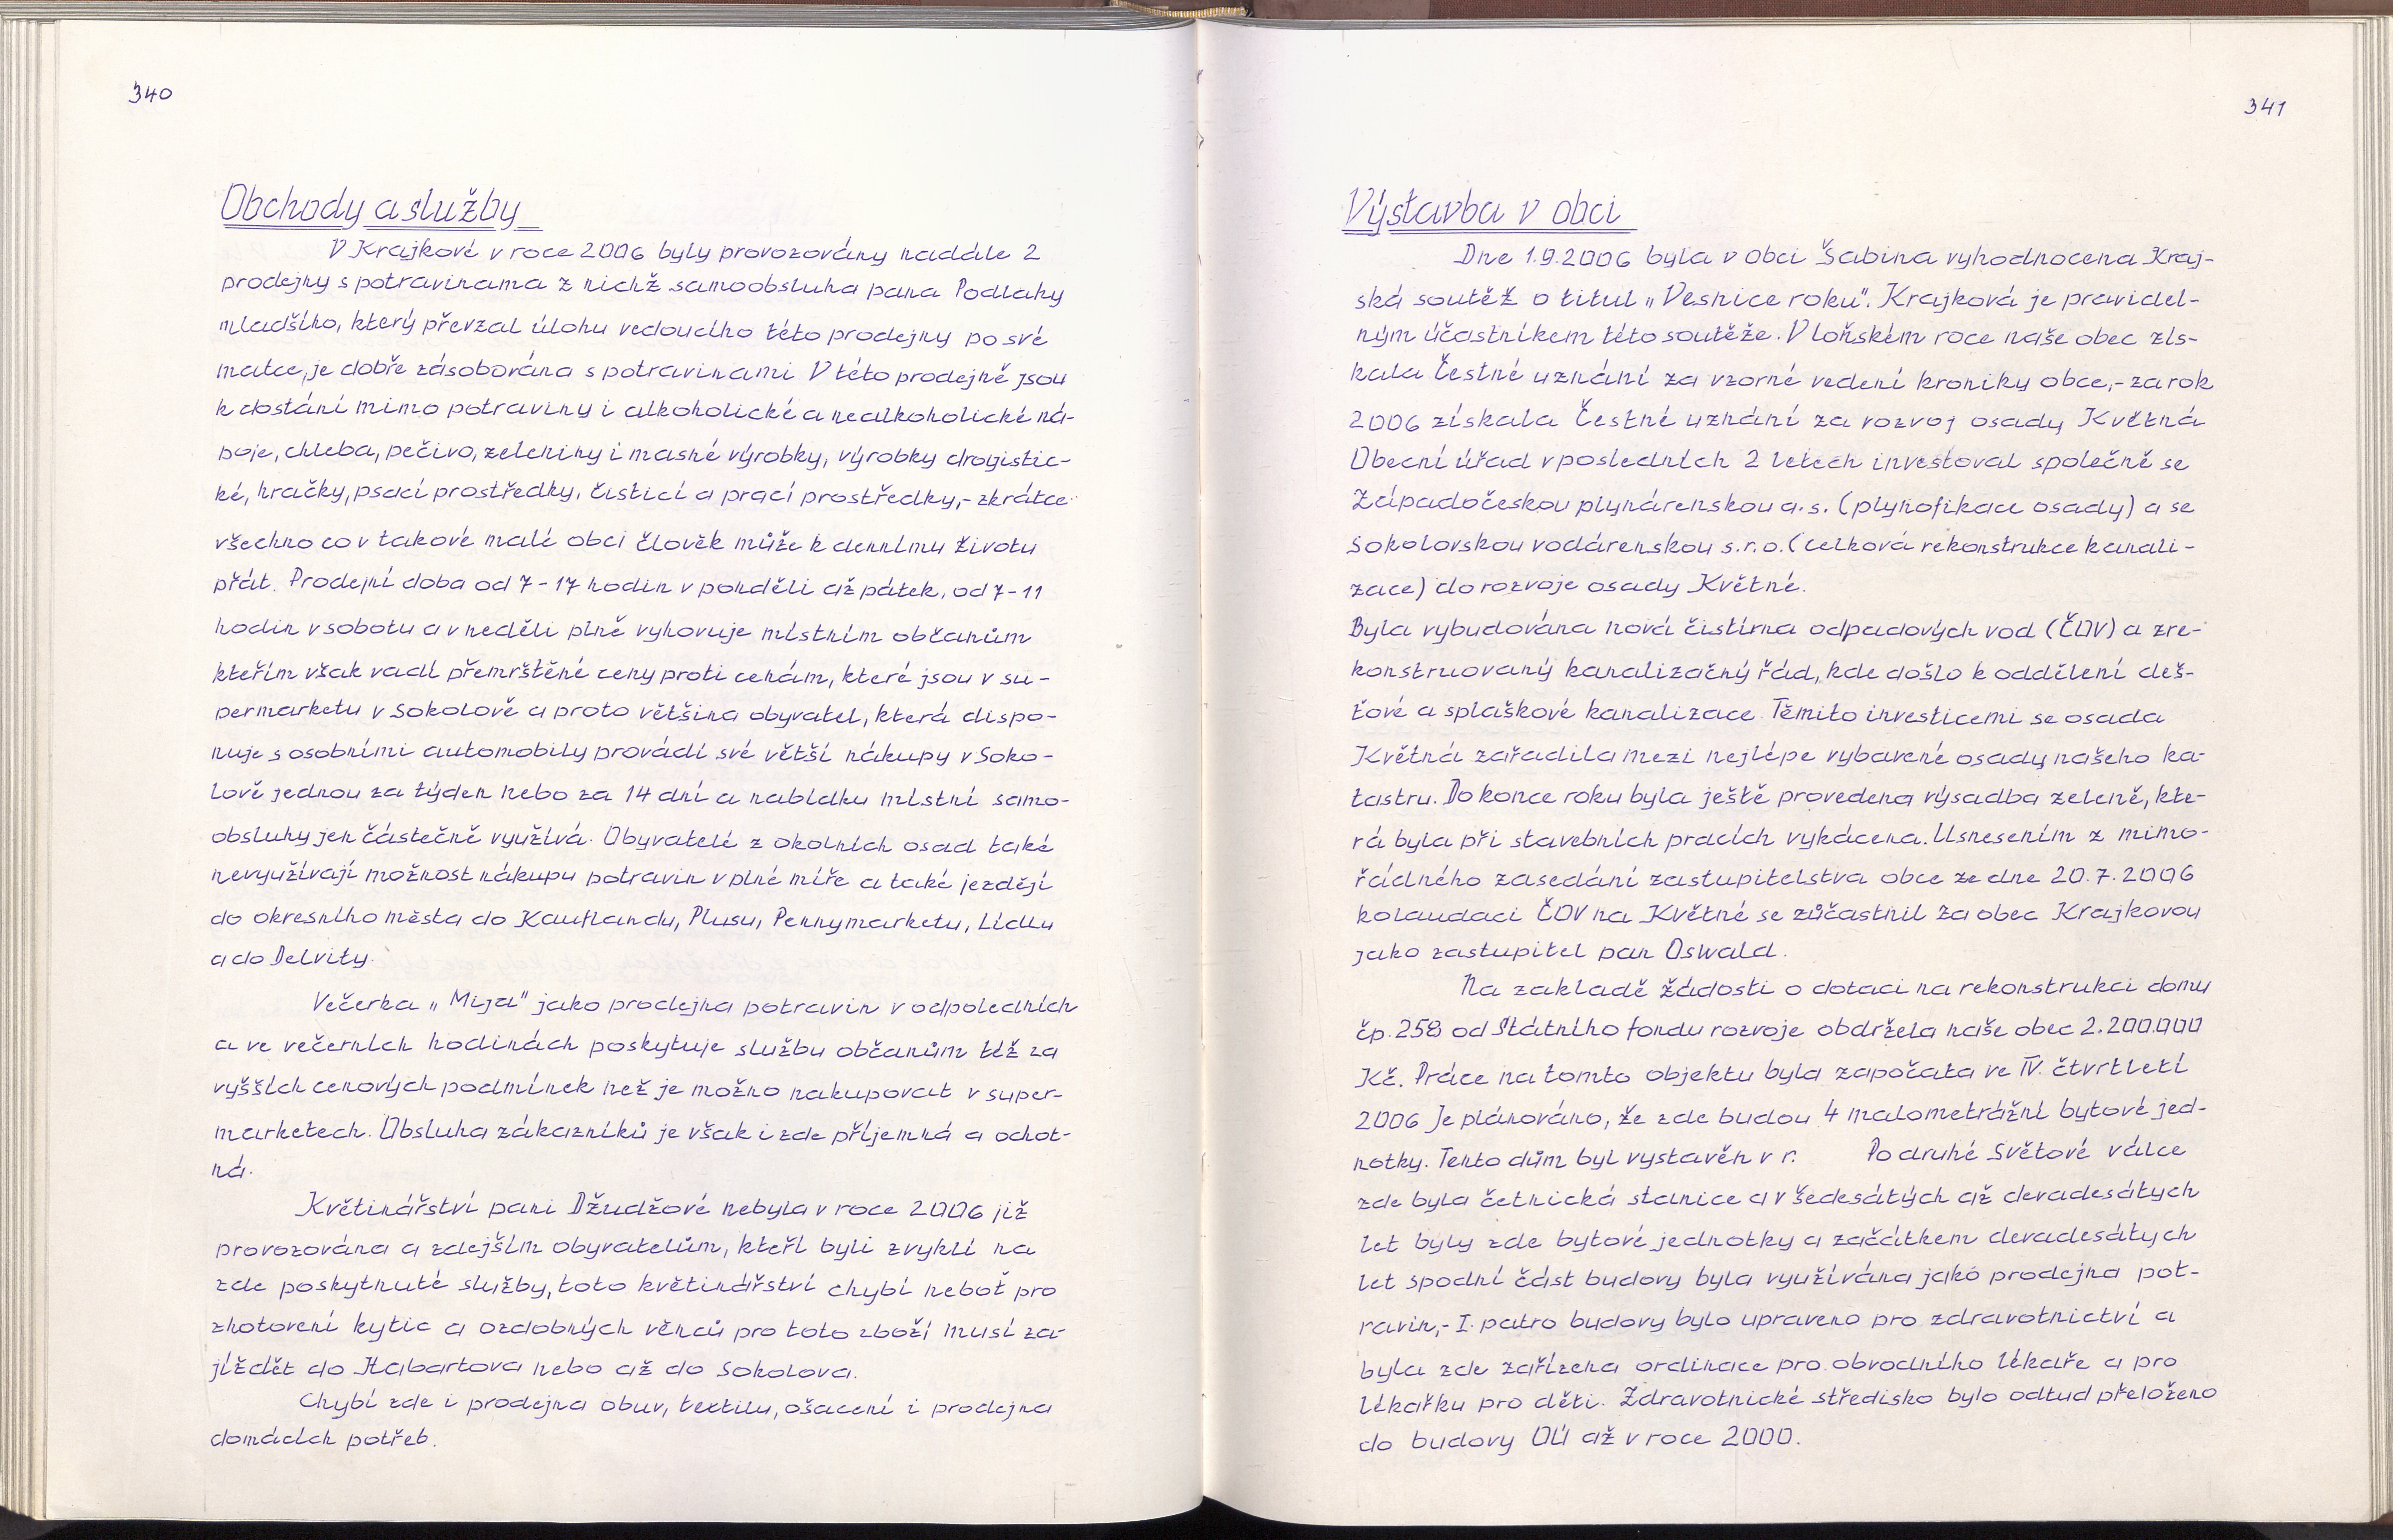 340
Obchody a služby
V Krajkové v roce 2006 byly provozovány nadále 2
prodejny s potravinama z nichž samoobsluha pana Podlahy
mladšího, který převzal úlohu vedoucího této prodejny po své
matce, je dobře zásobována s potravinami V této prodejně jsou
k dostání mimo potraviny i alkoholické a nealkoholické ná-
poje, chleba, pečivo, zeleniny i masné výrobky, výrobky drogistic-
ké, hračky, psací prostředky, čisticí a prací prostředky,- zkrátce
všechno co v takové malé obci člověk může k dennímu životu
přát. Prodejní doba od 7-17 hodin v ponděli až pátek, od 7-11
hodin v sobotu a v neděli plně vyhovuje místním občanům
kteřím však vadí přemrštěné ceny proti cenám, které jsou v su-
permarketu v Sokolově a proto většina obyvatel, která dispo-
nuje s osobními automobily provádí své větší nákupy v Soko-
lově jednou za týden nebo za 14 dní a nabídku místní samo-
obsluhy jen částečně využívá. Obyvatelé z okolních osad také
nevyužívají možnost nákupu potravin v plné míře a také jezdějí
do okresního města do Kauflandu, Plusu, Pennymarketu, Lidlu
a do Delvity.
Večerka „Mija" jako prodejna potravin v odpoledních
a ve večerních hodinách poskytuje službu občanům též za
vyšších cenových podmínek než je možno nakupovat v super-
marketech. Obsluha zákazníků je však i zde příjemná a ochot-
ná.
Květinářství pani Džudžové nebyla v roce 2006 již
provozována a zdejším obyvatelům, kteří byli zvyklí na
zde poskytnuté služby, toto květinářství chybí neboť pro
zhotovení kytic a ozdobných věnců pro toto zboží musí za-
jíždět do Habartova nebo až do Sokolova.
Chybí zde i prodejna obuv, textilu, ošacení i prodejna
domácích potřeb.
341
Výstavba v obci
Dne 1.9.2006 byla v obci Šabina vyhodnocena Kraj-
ská soutěž o titul „Vesnice roku". Krajková je pravidel-
ným účastníkem této soutěže. V loňském roce naše obec zís-
kala Čestné uznání za vzorné vedení kroniky obce,- za rok
2006 získala Čestné uznání za rozvoj osady Květná
Obecní úřad v posledních 2 letech investoval společně se
Západočeskou plynárenskou a.s. (plynofikace osady) a se
Sokolovskou vodárenskou s.r.o. (celková rekonstrukce kanali-
zace) do rozvoje osady Květné.
Byla vybudována nová čistírna odpadových vod (ČOV) a zre-
konstruovaný kanalizačný řád, kde došlo k oddělení deš-
ťové a splaškové kanalizace. Těmito investicemi se osada
Květná zařadila mezi nejlépe vybavené osady našeho ka-
tastru. Do konce roku byla ještě provedena výsadba zeleně, kte-
rá byla při stavebních pracích vykácena. Usnesením z mimo-
řádného zasedání zastupitelstva obce ze dne 20.7.2006
kolaudaci ČOV na Květné se zůčastnil za obec Krajkovou
jako zastupitel pan Oswald.
Na zakladě žádosti o dotaci na rekonstrukci domu
čp. 258 od Státního fondu rozvoje obdržela naše obec 2.200.000
Kč. Práce na tomto objektu byla započata ve IV. čtvrtletí
2006 Je plánováno, že zde budou 4 malometrážní bytové jed-
notky. Tento dům byl vystavěn v r. Po druhé Světové válce
zde byla četnická stanice a v šedesátých až devadesátych
let byly zde bytové jednotky a začátkem devadesátych
let spodní část budovy byla využívána jako prodejna pot-
ravin,- I. patro budovy bylo upraveno pro zdravotnictví a
byla zde zařízena ordinace pro obvodního lékaře a pro
lékařku pro děti. Zdravotnické středisko bylo odtud přeloženo
do budovy OÚ až v roce 2000.